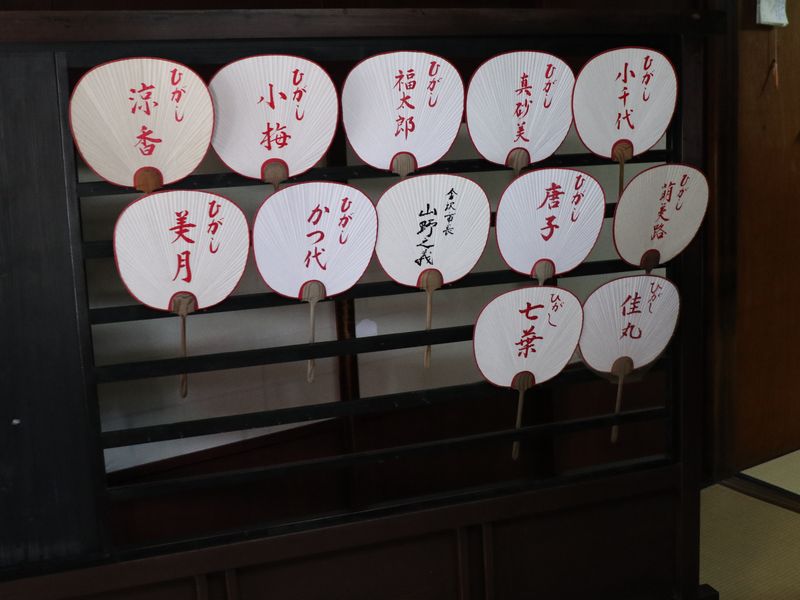 ひがし
涼香
ひがし
小梅
ひがし
福太郎
ひがし
真砂美
ひがし
小千代
ひがし
美月
ひがし
かつ代
金沢市長
山野之義
ひがし
唐子
ひがし
萌美路
ひがし
七葉
ひがし
佳丸